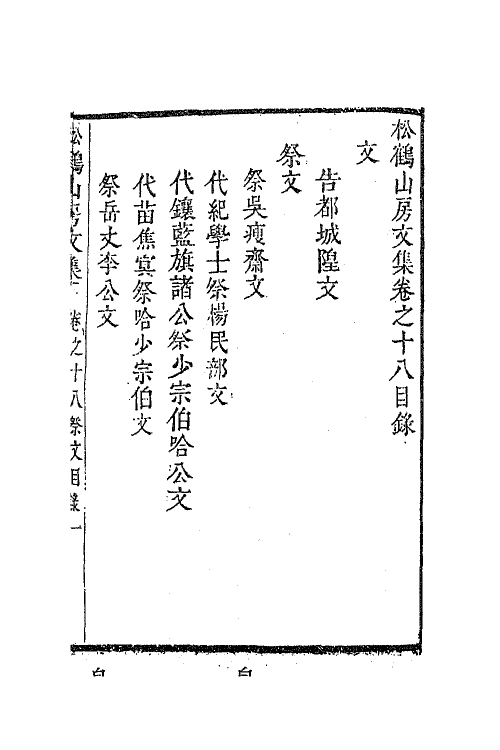 松鶴山房文集卷之十八目錄
文
告都城隍文
祭文
祭吳瘦齋文
代紀學士祭楊民部文
代鑲藍旗諸公祭少宗伯哈公文
代苗焦冥祭哈少宗伯文
祭岳丈李公文
松鶴山房文集 卷之十八祭文目錄 一